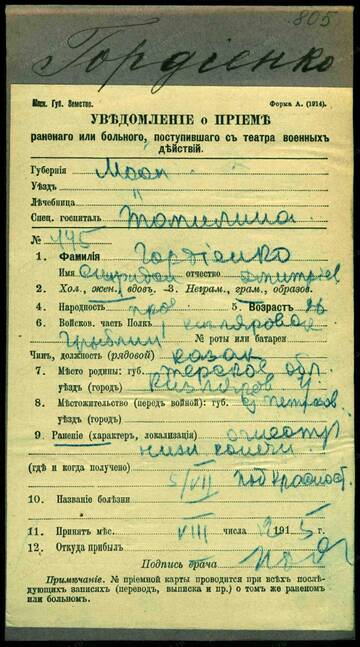 805
Гордіенко
Моск. Губ. Земство. Форма А. (1914).
УВѢДОМЛЕНІЕ о ПРІЕМѢ
раненаго или больного, поступившаго съ театра военныхъ
дѣйствій.
Губернія Моск
Уѣздъ "
Лѣчебница
Спец. госпиталь Топилина
№ 445
1. Фамилія Гордіенко
Имя отчество Дмитріев
2. Хол., жен., вдов. 3. Неграм., грам., образов.
4. Народность 5. Возрастъ 26
6. Войсков. часть Полкъ
№ роты или батареи
Чинъ, должность (рядовой) казак
7. Мѣсто родины: губ. Терской обл.
уѣздъ (городъ) Кизляров
8. Мѣстожительство (передъ войной): губ.
уѣздъ (городъ)
9. Раненіе (характеръ, локализація) огнестр
(гдѣ и когда получено) 5/VII под Красност
10. Названіе болѣзни
11. Принятъ мѣс. VIII числа 1915 г.
12. Откуда прибылъ
Подпись врача
Примѣчаніе. № пріемной карты проводится при всѣхъ послѣ-
дующихъ записяхъ (переводъ, выписка и пр.) о томъ же раненомъ
или больномъ.